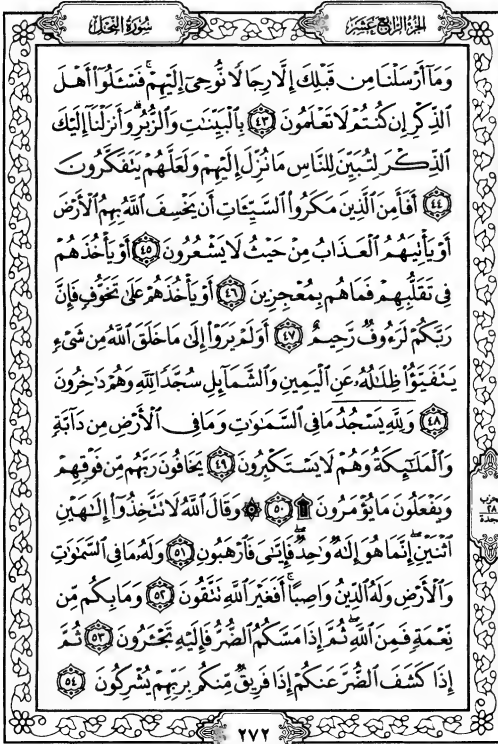 سُورَةُ النَّحۡلِ
الجزء الرابع عشر
وَمَآ أَرۡسَلۡنَا مِن قَبۡلِكَ إِلَّا رِجَالٗا نُّوحِيٓ إِلَيۡهِمۡۖ فَسۡـَٔلُوٓاْ أَهۡلَ
ٱلذِّكۡرِ إِن كُنتُمۡ لَا تَعۡلَمُونَ ٤٣ بِٱلۡبَيِّنَٰتِ وَٱلزُّبُرِۗ وَأَنزَلۡنَآ إِلَيۡكَ
ٱلذِّكۡرَ لِتُبَيِّنَ لِلنَّاسِ مَا نُزِّلَ إِلَيۡهِمۡ وَلَعَلَّهُمۡ يَتَفَكَّرُونَ
٤٤ أَفَأَمِنَ ٱلَّذِينَ مَكَرُواْ ٱلسَّيِّـَٔاتِ أَن يَخۡسِفَ ٱللَّهُ بِهِمُ ٱلۡأَرۡضَ
أَوۡ يَأۡتِيَهُمُ ٱلۡعَذَابُ مِنۡ حَيۡثُ لَا يَشۡعُرُونَ ٤٥ أَوۡ يَأۡخُذَهُمۡ
فِي تَقَلُّبِهِمۡ فَمَا هُم بِمُعۡجِزِينَ ٤٦ أَوۡ يَأۡخُذَهُمۡ عَلَىٰ تَخَوُّفٖ فَإِنَّ
رَبَّكُمۡ لَرَءُوفٞ رَّحِيمٌ ٤٧ أَوَلَمۡ يَرَوۡاْ إِلَىٰ مَا خَلَقَ ٱللَّهُ مِن شَيۡءٖ
يَتَفَيَّؤُاْ ظِلَٰلُهُۥ عَنِ ٱلۡيَمِينِ وَٱلشَّمَآئِلِ سُجَّدٗا لِّلَّهِ وَهُمۡ دَٰخِرُونَ
٤٨ وَلِلَّهِ يَسۡجُدُۤ مَا فِي ٱلسَّمَٰوَٰتِ وَمَا فِي ٱلۡأَرۡضِ مِن دَآبَّةٖ
وَٱلۡمَلَٰٓئِكَةُ وَهُمۡ لَا يَسۡتَكۡبِرُونَ ٤٩ يَخَافُونَ رَبَّهُم مِّن فَوۡقِهِمۡ
وَيَفۡعَلُونَ مَا يُؤۡمَرُونَ ۩ ٥٠ ۞ وَقَالَ ٱللَّهُ لَا تَتَّخِذُوٓاْ إِلَٰهَيۡنِ
ٱثۡنَيۡنِۖ إِنَّمَا هُوَ إِلَٰهٞ وَٰحِدٞ فَإِيَّٰيَ فَٱرۡهَبُونِ ٥١ وَلَهُۥ مَا فِي ٱلسَّمَٰوَٰتِ
وَٱلۡأَرۡضِ وَلَهُ ٱلدِّينُ وَاصِبًاۚ أَفَغَيۡرَ ٱللَّهِ تَتَّقُونَ ٥٢ وَمَا بِكُم مِّن
نِّعۡمَةٖ فَمِنَ ٱللَّهِۖ ثُمَّ إِذَا مَسَّكُمُ ٱلضُّرُّ فَإِلَيۡهِ تَجۡـَٔرُونَ ٥٣ ثُمَّ
إِذَا كَشَفَ ٱلضُّرَّ عَنكُمۡ إِذَا فَرِيقٞ مِّنكُم بِرَبِّهِمۡ يُشۡرِكُونَ ٥٤
٢٧٢